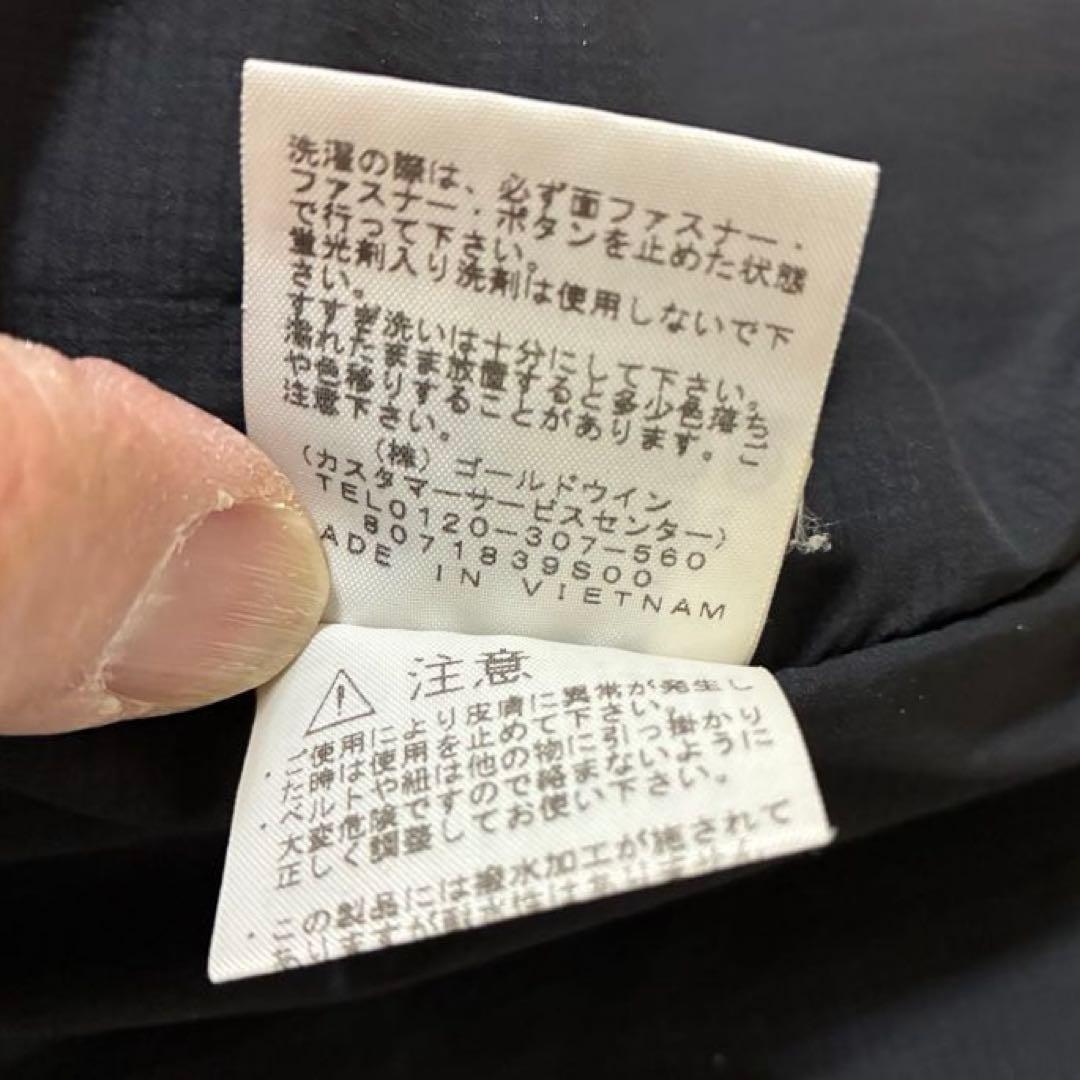 洗濯の際は、必ず面ファスナー・
ファスナー・ボタンを止めた状態
で行って下さい。
蛍光剤入り洗剤は使用しないで下
さい。
すすぎ洗いは十分にして下さい。
濡れたまま放置すると多少色落ち
や色移りすることがあります。ご
注意下さい。
(株) ゴールドウイン
(カスタマーサービスセンター)
TEL0120-307-560
8071839S00
ADE IN VIETNAM
注意
・ご使用により皮膚に異常が発生し
た時は使用を止めて下さい。
・ベルトや紐は他の物に引っ掛かり
大変危険ですので絡まないように
正しく調整してお使い下さい。
・この製品には撥水加工が施されて
ありますが耐水性はありません